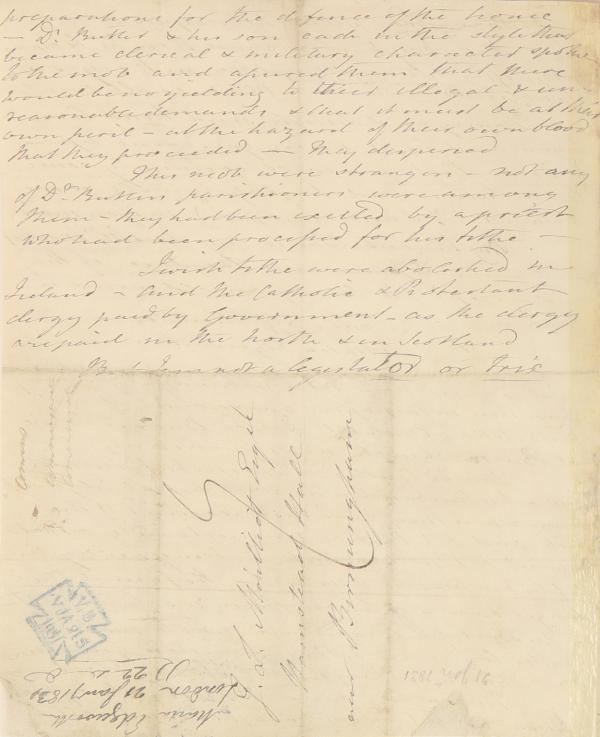 preparations for the defence of the house
— Dr. Butler & his son each in the style that
became clerical & military characters spoke
to the mob and assured them that there
would be no yielding to their illegal & un-
reasonable demands & that it must be at their
own peril – at the hazard of their own blood
that they proceeded — They dispersed
This mob were strangers – not any
of Dr. Butlers parishioners were among
them – they had been excited by a priest
who had been processed for his tithe –
I wish tithe were abolished in
Ireland – and the Catholic & Protestant
clergy paid by Government – as the clergy
are paid in the north & in Scotland
But I am not a legislator or
J. L. Moilliet Esqre
Hamstead Hall
near Birmingham
Maria Edgeworth
London
21 Jany 1831
21 Jany 1831